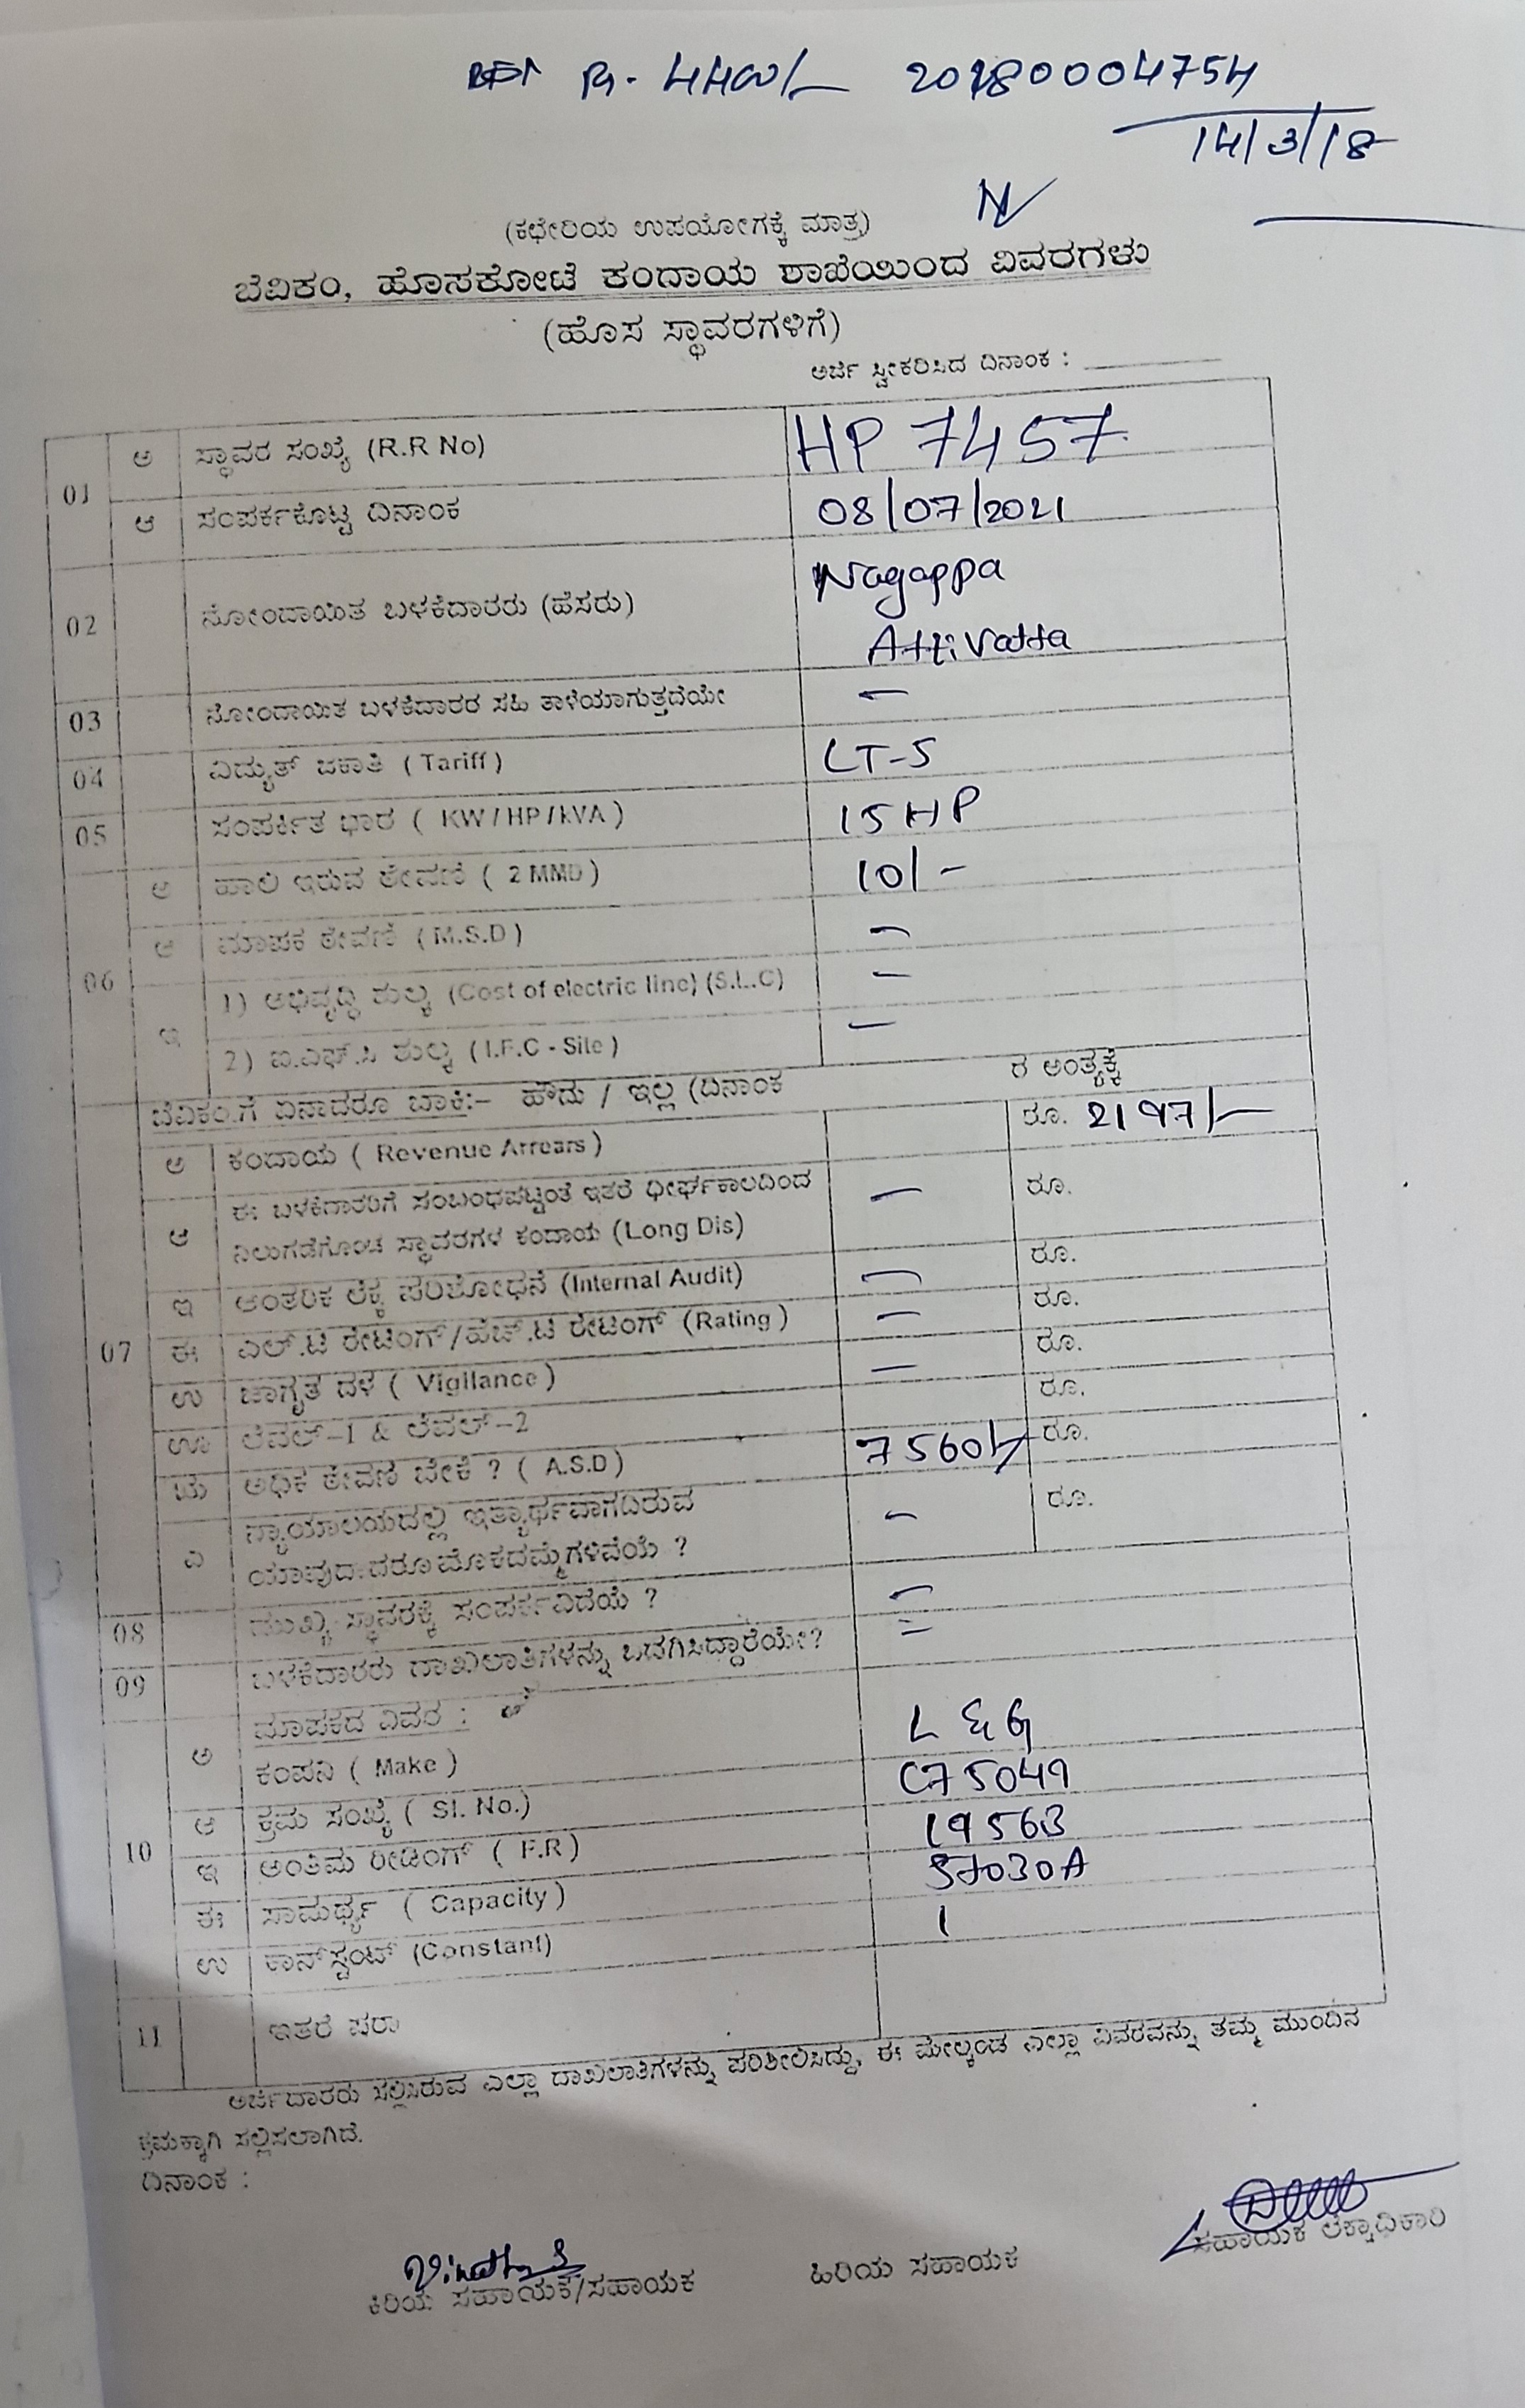 R. 4400/- 20180004754
14/3/18
(ಕಛೇರಿಯ ಉಪಯೋಗಕ್ಕೆ ಮಾತ್ರ)
ಬೆವಿಕಂ, ಹೊಸಕೋಟೆ ಕಂದಾಯ ಶಾಖೆಯಿಂದ ವಿವರಗಳು
(ಹೊಸ ಸ್ಥಾವರಗಳಿಗೆ)
ಅರ್ಜಿ ಸ್ವೀಕರಿಸಿದ ದಿನಾಂಕ :
01 ಅ ಸ್ಥಾವರ ಸಂಖ್ಯೆ (R.R No) HP 7457
ಆ ಸಂಪರ್ಕಕೊಟ್ಟ ದಿನಾಂಕ 08/07/2021
02 ನೋಂದಾಯಿತ ಬಳಕೆದಾರರು (ಹೆಸರು) Nagappa
Attivatta
03 ನೋಂದಾಯಿತ ಬಳಕೆದಾರರ ಸಹಿ ತಾಳೆಯಾಗುತ್ತದೆಯೇ –
04 ವಿದ್ಯುತ್ ಜಕಾತಿ ( Tariff ) LT-5
05 ಸಂಪರ್ಕಿತ ಭಾರ ( KW / HP / kVA ) 15 HP
06 ಅ ಹಾಲಿ ಇರುವ ಠೇವಣಿ ( 2 MMD ) 10/-
ಆ ಮಾಪಕ ಠೇವಣಿ ( M.S.D ) –
ಇ 1) ಅಭಿವೃದ್ಧಿ ಶುಲ್ಕ (Cost of electric line) (S.L.C) –
2) ಐ.ಎಫ್.ಸಿ ಶುಲ್ಕ ( I.F.C - Site ) –
ಬೆವಿಕಂ.ಗೆ ಏನಾದರೂ ಬಾಕಿ:– ಹೌದು / ಇಲ್ಲ (ದಿನಾಂಕ ರ ಅಂತ್ಯಕ್ಕೆ
07 ಅ ಕಂದಾಯ ( Revenue Arrears ) ರೂ. 2197/-
ಆ ಈ ಬಳಕೆದಾರರಿಗೆ ಸಂಬಂಧಪಟ್ಟಂತೆ ಇತರೆ ಧೀರ್ಘಕಾಲದಿಂದ
ನಿಲುಗಡೆಗೊಂಡ ಸ್ಥಾವರಗಳ ಕಂದಾಯ (Long Dis) – ರೂ.
ಇ ಆಂತರಿಕ ಲೆಕ್ಕ ಪರಿಶೋಧನೆ (Internal Audit) – ರೂ.
ಈ ಎಲ್.ಟಿ ರೇಟಿಂಗ್/ಹೆಚ್.ಟಿ ರೇಟಿಂಗ್ (Rating ) – ರೂ.
ಉ ಜಾಗೃತ ದಳ ( Vigilance ) – ರೂ.
ಊ ಲೆವಲ್–1 & ಲೆವಲ್–2 ರೂ.
ಋ ಅಧಿಕ ಠೇವಣಿ ಬೇಕೆ ? ( A.S.D ) 7560/- ರೂ.
ಎ ನ್ಯಾಯಾಲಯದಲ್ಲಿ ಇತ್ಯಾರ್ಥವಾಗದಿರುವ
ಯಾವುದಾದರೂ ಮೊಕದಮ್ಮೆಗಳಿವೆಯೆ ? – ರೂ.
08 ಮುಖ್ಯ ಸ್ಥಾವರಕ್ಕೆ ಸಂಪರ್ಕವಿದೆಯೆ ? –
09 ಬಳಕೆದಾರರು ದಾಖಲಾತಿಗಳನ್ನು ಒದಗಿಸಿದ್ದಾರೆಯೇ? –
10 ಅ ಮಾಪಕದ ವಿವರ :
ಕಂಪನಿ ( Make ) L & G
ಆ ಕ್ರಮ ಸಂಖ್ಯೆ ( Sl. No.) C75049
ಇ ಅಂತಿಮ ರೀಡಿಂಗ್ ( F.R ) 19563
ಈ ಸಾಮರ್ಥ್ಯ ( Capacity ) 5to30A
ಉ ಕಾನ್‌ಸ್ಟಂಟ್ (Constant) 1
11 ಇತರೆ ಷರಾ
ಅರ್ಜಿದಾರರು ಸಲ್ಲಿಸಿರುವ ಎಲ್ಲಾ ದಾಖಲಾತಿಗಳನ್ನು ಪರಿಶೀಲಿಸಿದ್ದು, ಈ ಮೇಲ್ಕಂಡ ಎಲ್ಲಾ ವಿವರವನ್ನು ತಮ್ಮ ಮುಂದಿನ
ಕ್ರಮಕ್ಕಾಗಿ ಸಲ್ಲಿಸಲಾಗಿದೆ.
ದಿನಾಂಕ :
ಕಿರಿಯ ಸಹಾಯಕ/ಸಹಾಯಕ ಹಿರಿಯ ಸಹಾಯಕ ಸಹಾಯಕ ಲೆಕ್ಕಾಧಿಕಾರಿ